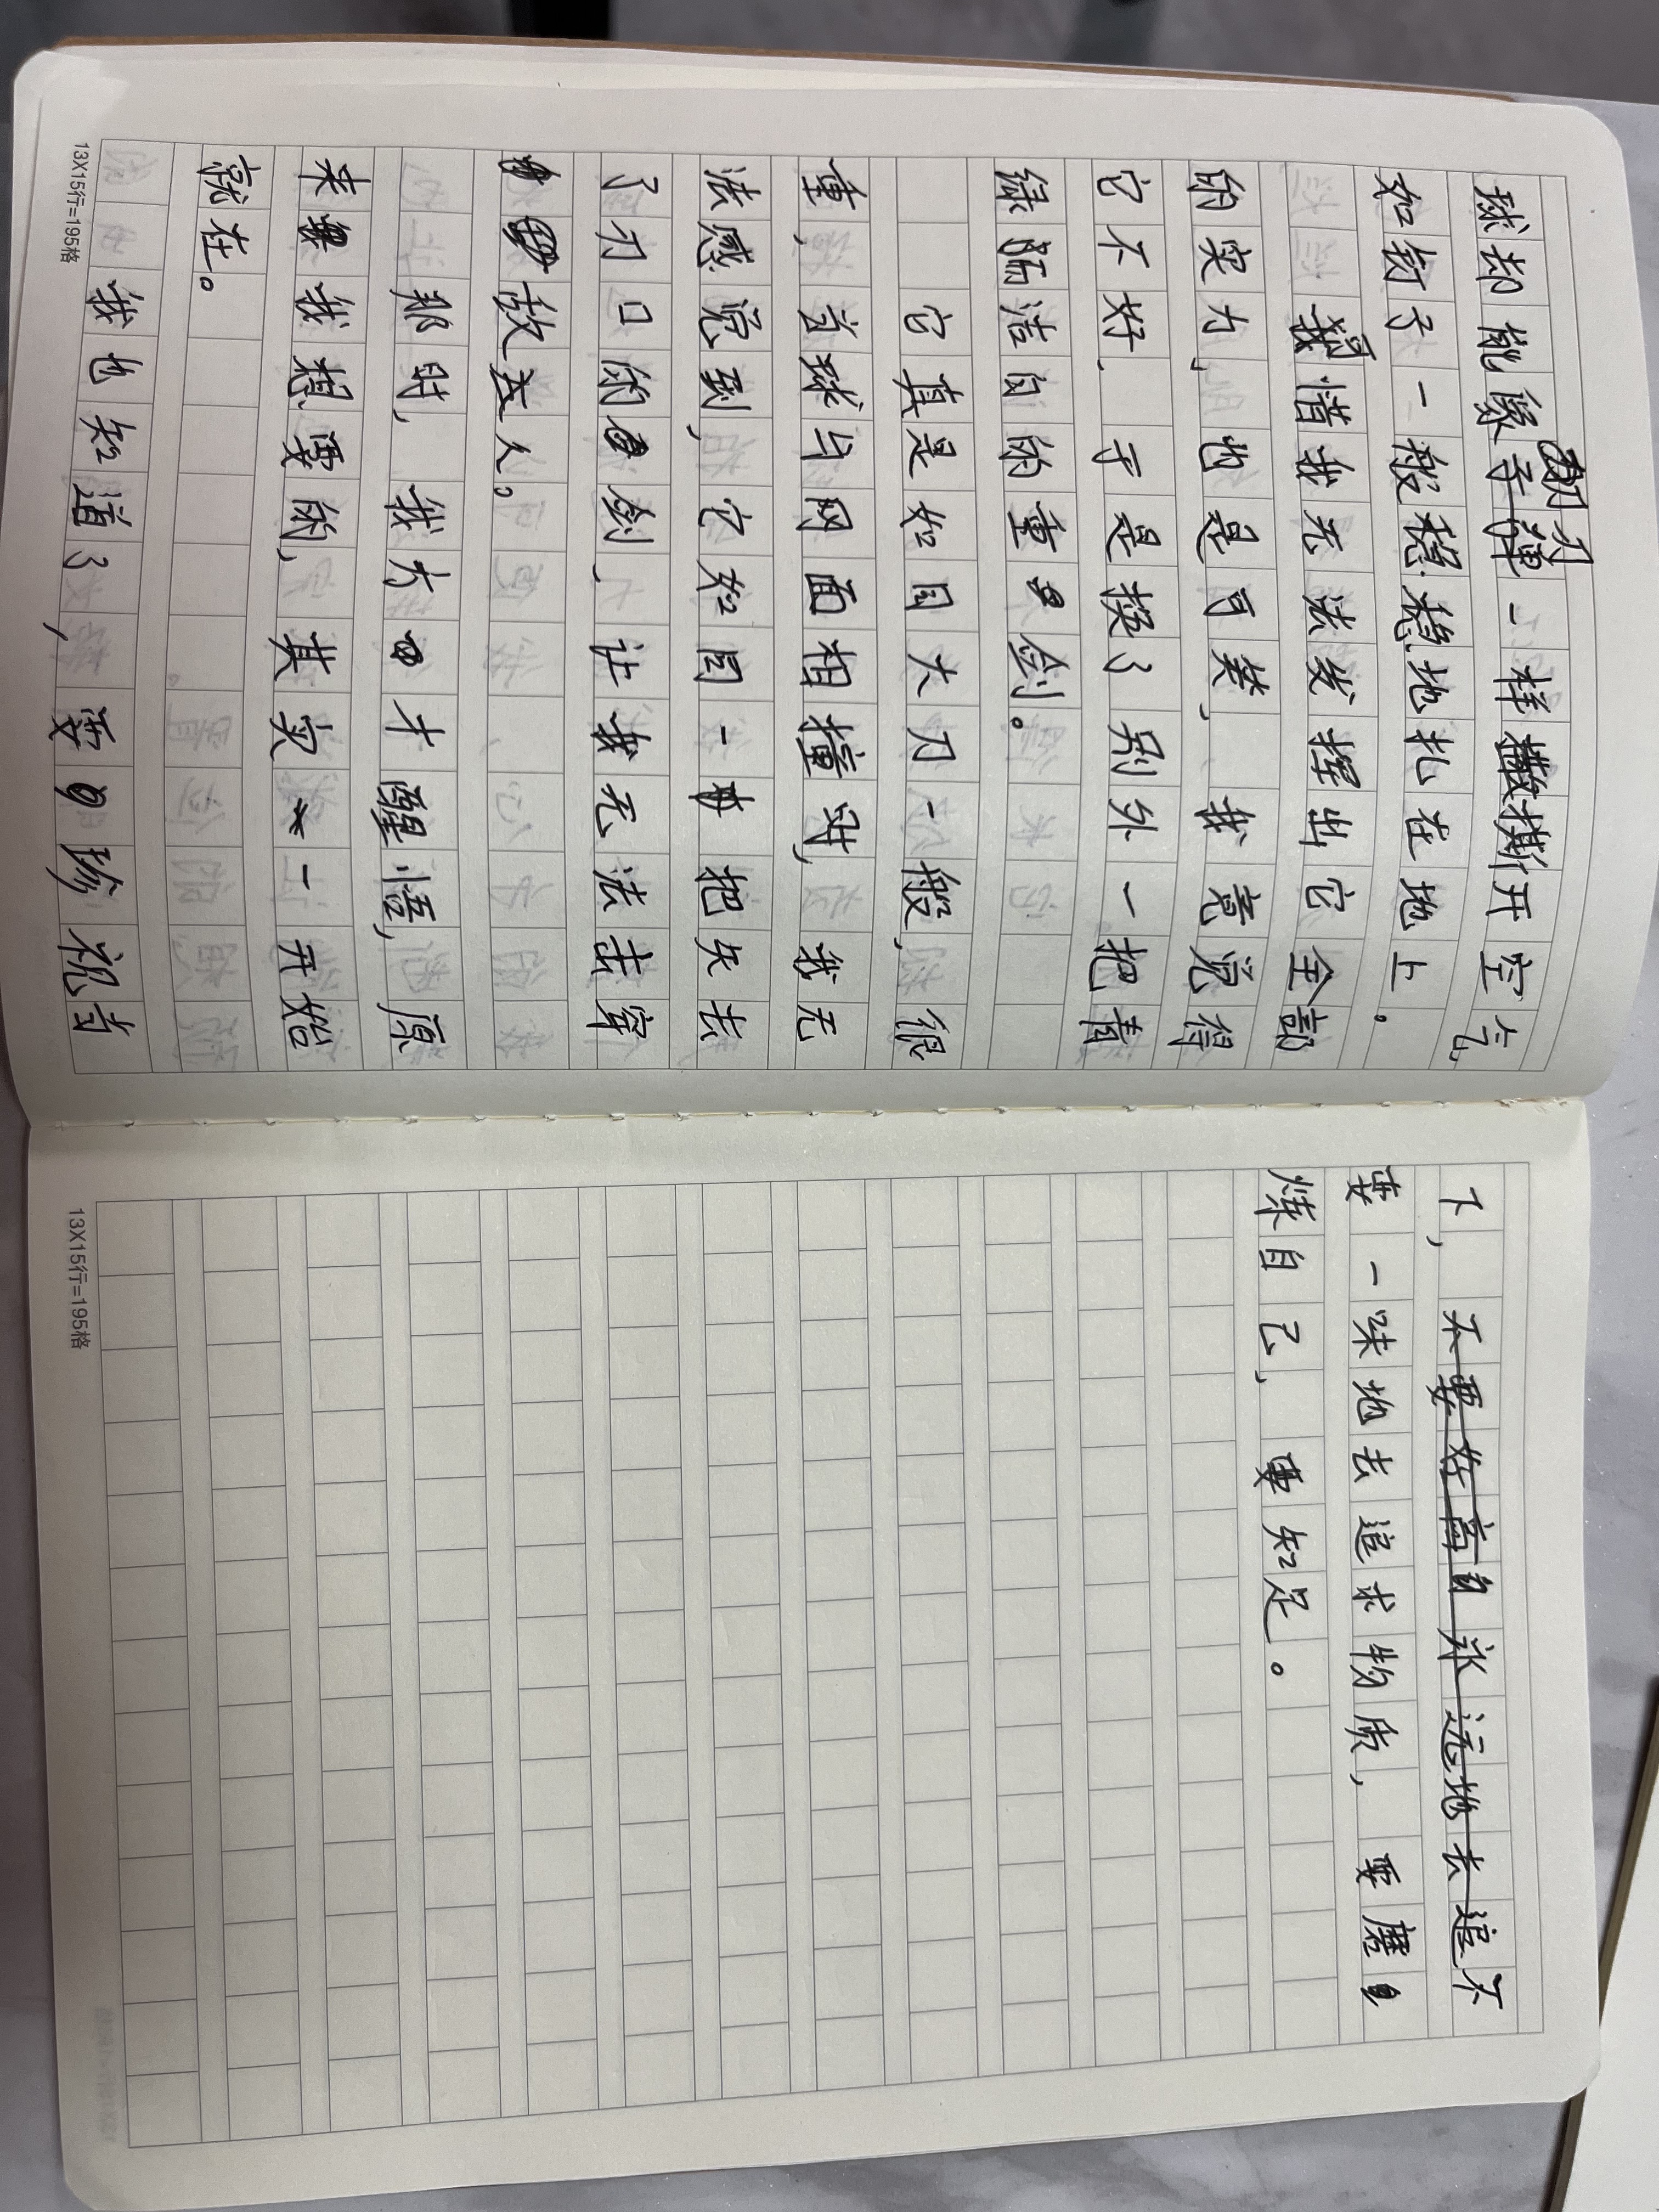 球却能像利刃一样撕开空气,
如钉子一般稳稳地扎在地上。
可惜我无法发挥出它全部
的实力,也是可笑,我竟觉得
它不好.于是换了别外一把青
绿陌洁白的重剑。
它真是如同大刀一般,很
重,当球与网面相撞时,我无
法感觉到,它如同一把失去
了刃口的剑,让我无法击穿
敌人。
那时,我才醒悟,原
来我想要的,其实一开始
就在。
我也知道了,要珍视当
13X15行=195格
下,不
要一味地去追求物质,要磨
炼自己,要知足。
13X15行=195格